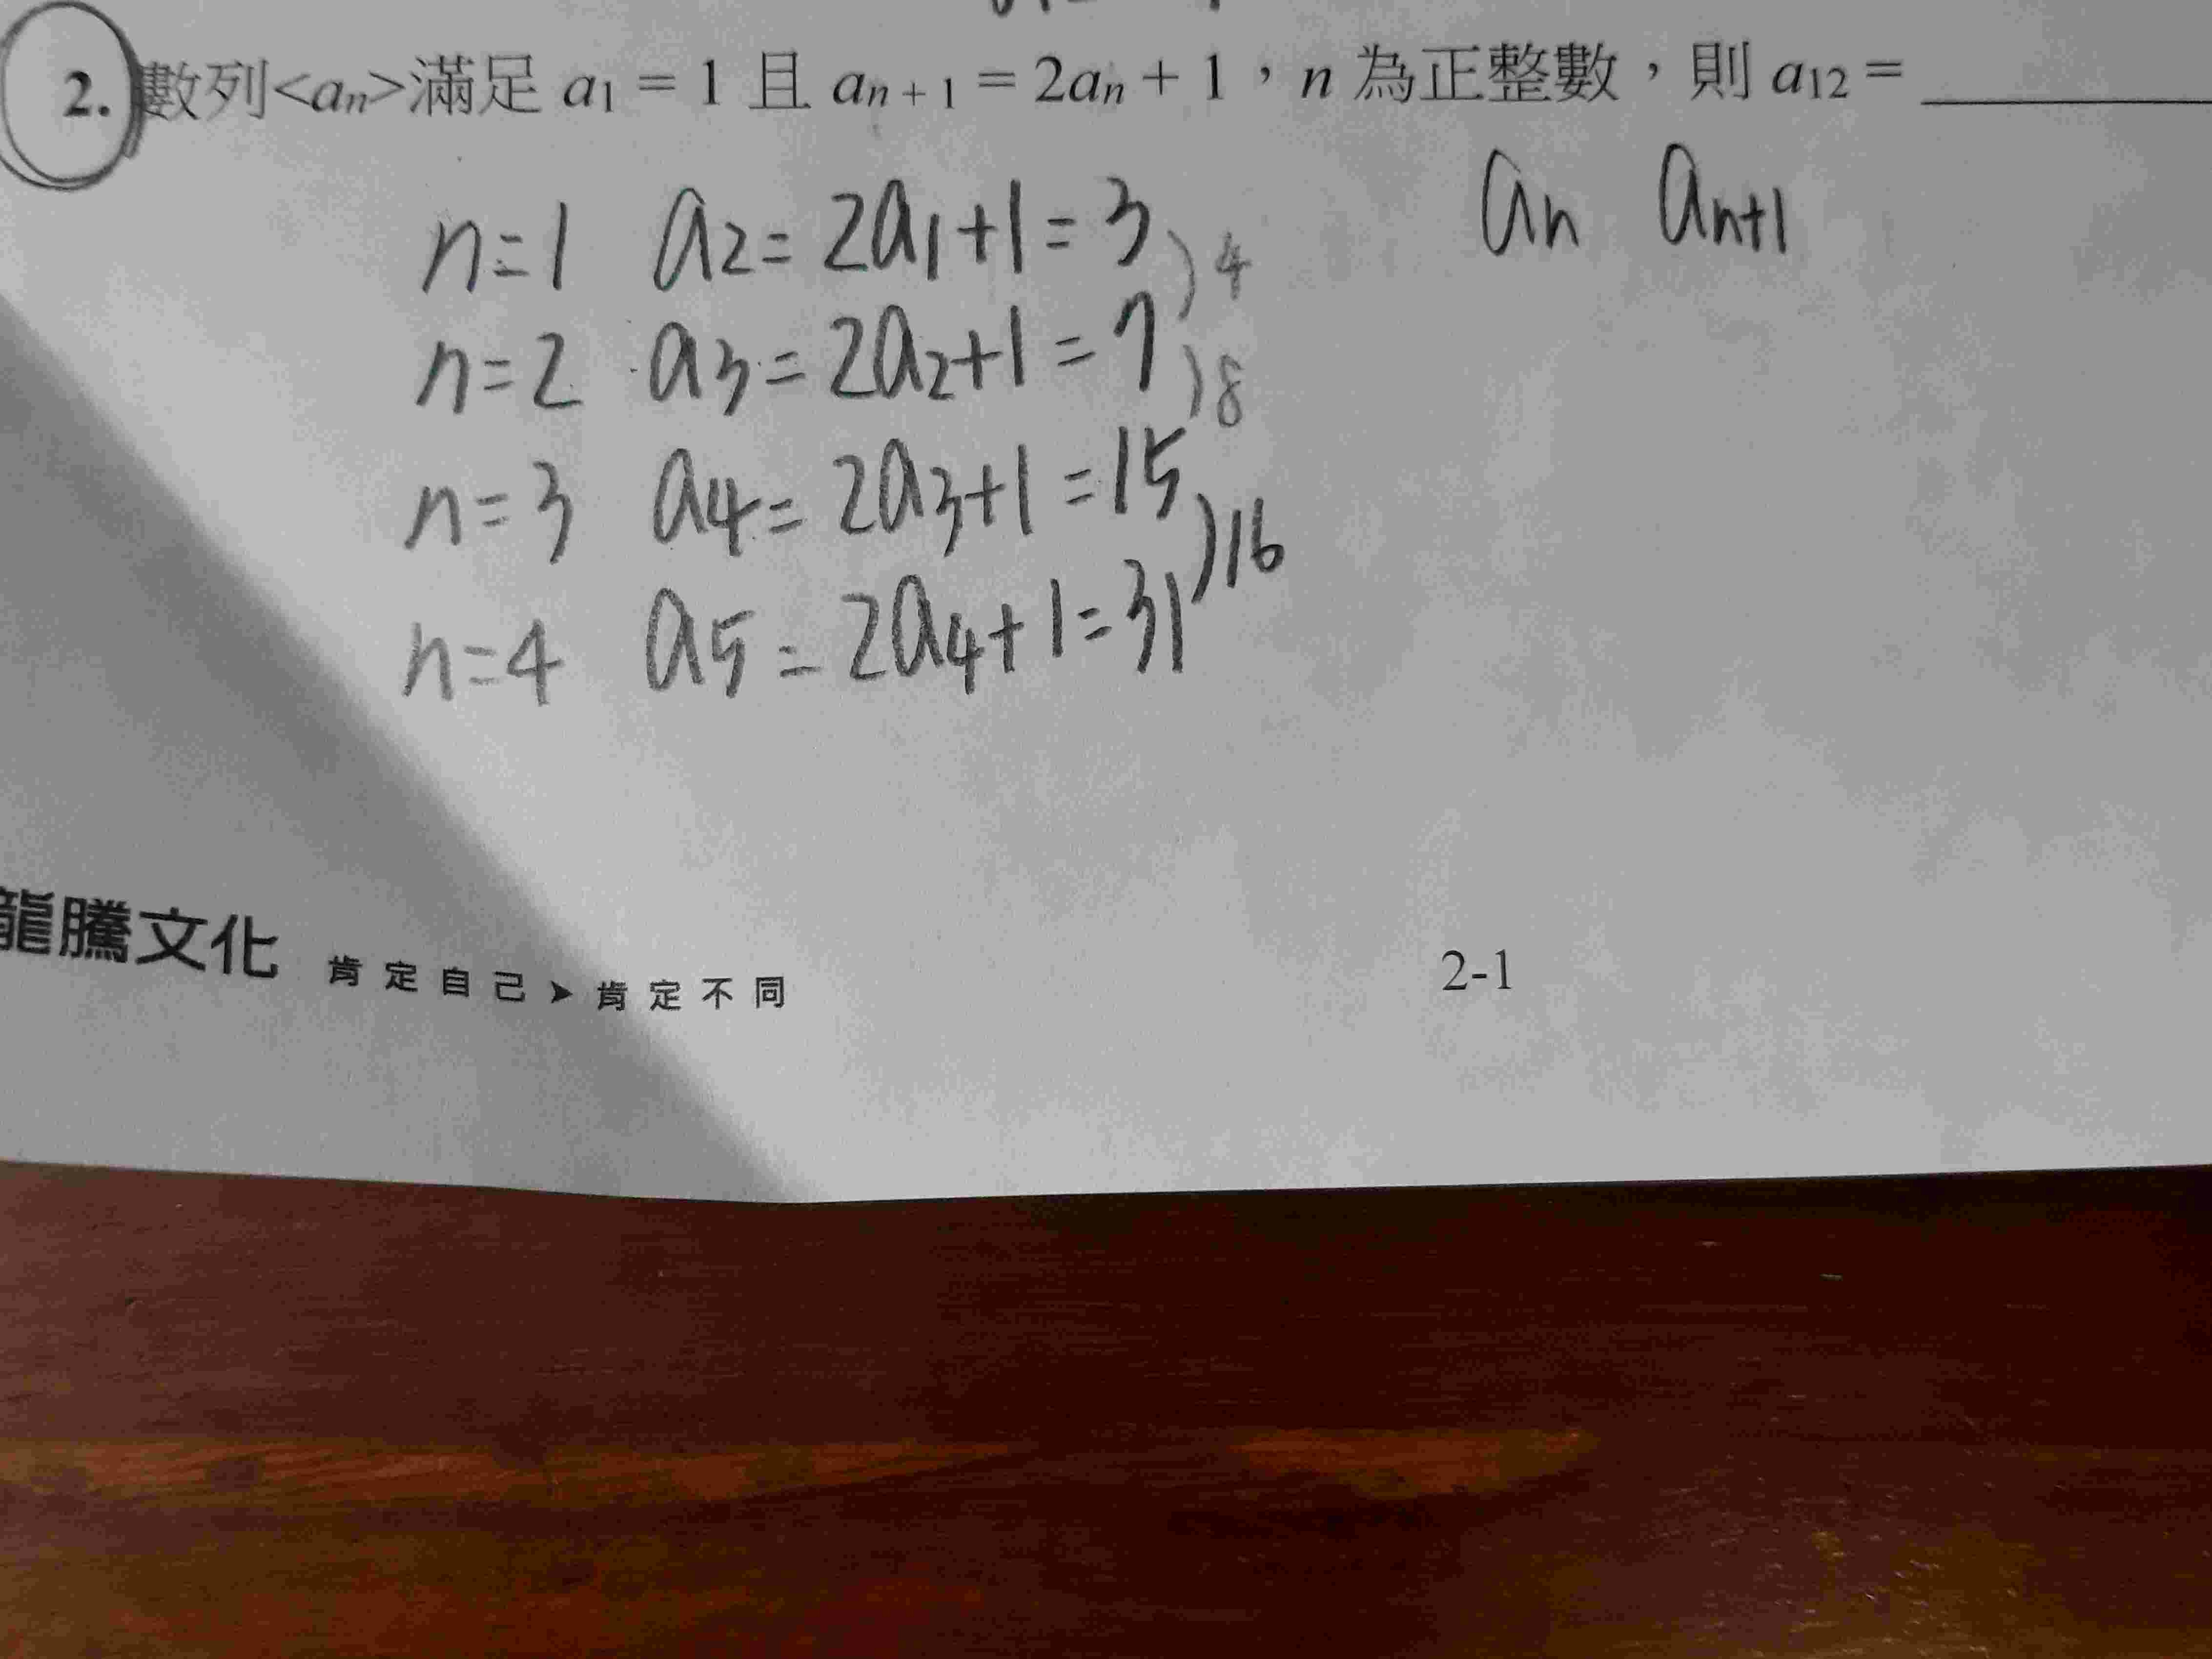 2. 數列<aₙ>滿足 a₁ = 1 且 aₙ₊₁ = 2aₙ + 1，n 為正整數，則 a₁₂ = ________
aₙ aₙ₊₁
n=1 a₂= 2a₁+1=3 )4
n=2 a₃= 2a₂+1=7 )8
n=3 a₄= 2a₃+1=15 )16
n=4 a₅= 2a₄+1=31
龍騰文化 肯定自己➤肯定不同
2-1